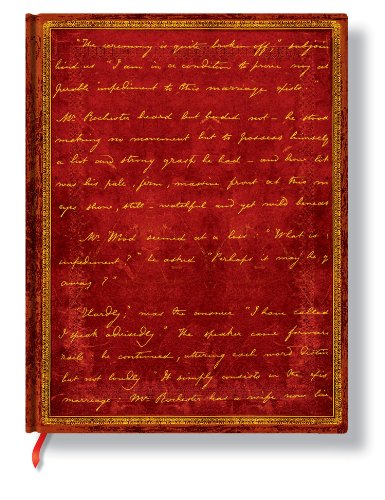 "The ceremony is quite broken off," subjoin
hind us "I am in a condition to prove my al
insuperable impediment to this marriage exists."
Mr. Rochester heard but heeded not - he stood
making no movement but to possess himself
a hot and strong grasp he had - and how like
was his pale, firm, massive front at this m
eyes shone, still - watchful and yet wild beneath
Mr. Wood seemed at a loss "What is
impediment?" he asked "Perhaps it may be g
away?"
"Hardly," was the answer "I have called
I speak advisedly" The speaker came forward
rails he continued, uttering each word distin
but not loudly "It simply consists in the exis
marriage. Mr. Rochester has a wife now liv